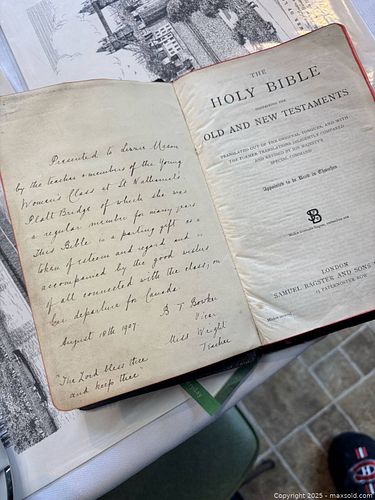 Presented to
by the teacher & members of the Young
Women's Class at St Nathaniel's
Platt Bridge of which she was
a regular member for many years
This Bible is a parting gift as a
token of esteem and regard and is
accompanied by the good wishes
of all connected with the class, on
her departure for Canada.
B T
Vicar
August 18th 1907.
Miss Wright
Teacher
"The Lord bless thee
and keep thee"
THE
HOLY BIBLE
CONTAINING THE
OLD AND NEW TESTAMENTS
TRANSLATED OUT OF THE ORIGINAL TONGUES, AND WITH
THE FORMER TRANSLATIONS DILIGENTLY COMPARED
AND REVISED BY HIS MAJESTY'S
SPECIAL COMMAND
Appointed to be Read in Churches
SB
LONDON
SAMUEL BAGSTER AND SONS
15 PATERNOSTER ROW
Copyright © 2025 - maxsold.com